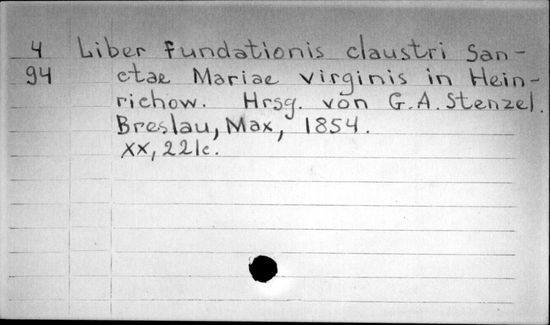 4 Liber fundationis claustri San-
94 ctae Mariae virginis in Hein-
richow. Hrsg. von G.A. Stenzel.
Breslau, Max, 1854.
XX, 221c.